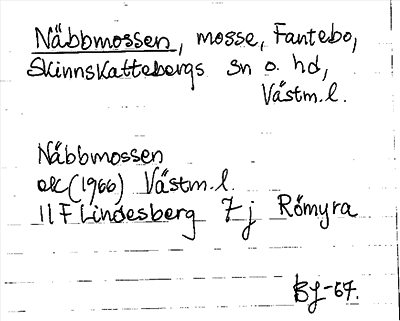 Näbbmossen, mosse, Fantebo,
Skinnskattebergs sn o. hd,
Västm.l.
Näbbmossen
ek (1966) Västm.l.
11 F Lindesberg 7 j Römyra
BJ-67.